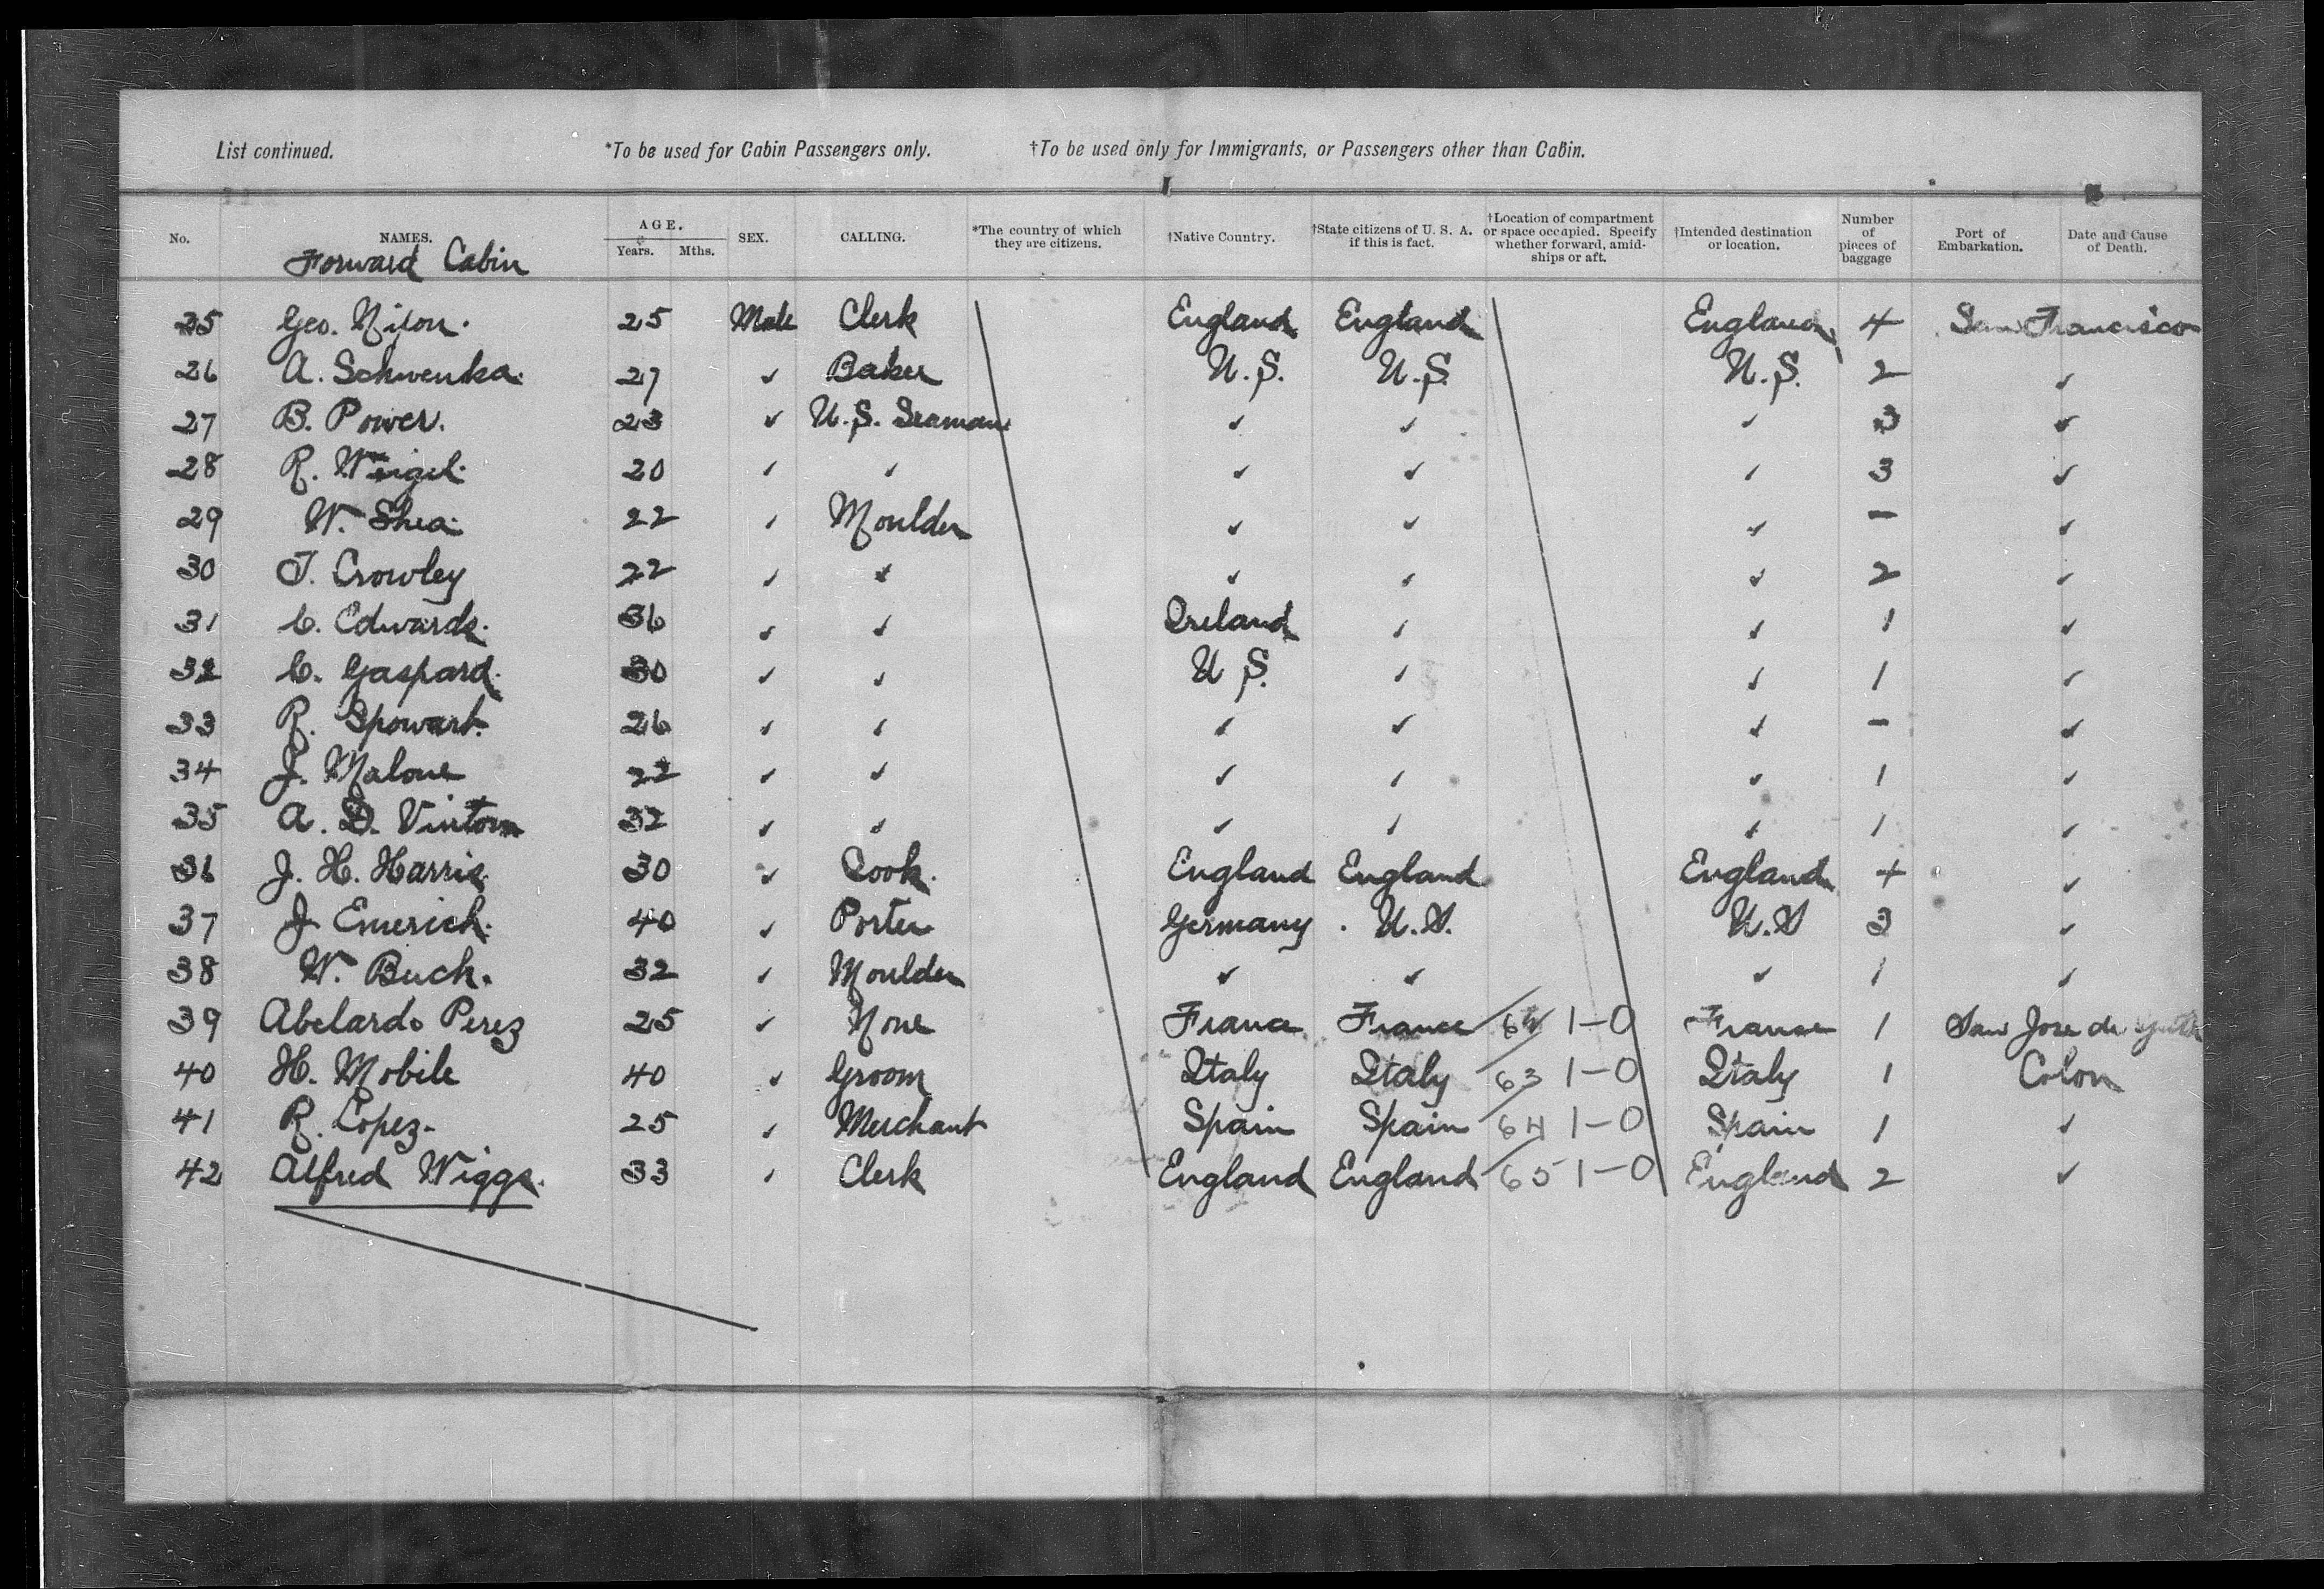 List continued. *To be used for Cabin Passengers only. †To be used only for Immigrants, or Passengers other than Cabin.
No. NAMES. AGE. Years. Mths. SEX. CALLING. *The country of which they are citizens. †Native Country. †State citizens of U. S. A. if this is fact. †Location of compartment or space occupied. Specify whether forward, amidships or aft. †Intended destination or location. Number of pieces of baggage Port of Embarkation. Date and Cause of Death.
Forward Cabin
25 Geo. Nixon. 25 Male Clerk England England England 4 San Francisco
26 A. Schwenka. 27 ✓ Baker U.S. U.S. U.S. 2 ✓
27 B. Power. 23 ✓ U.S. Seaman ✓ ✓ ✓ 3 ✓
28 R. Weigel. 20 ✓ ✓ ✓ ✓ ✓ 3 ✓
29 W. Shea. 22 ✓ Moulder ✓ ✓ ✓ — ✓
30 T. Crowley 22 ✓ ✓ ✓ ✓ ✓ 2 ✓
31 C. Edwards. 36 ✓ ✓ Ireland ✓ ✓ 1 ✓
32 C. Gaspard. 30 ✓ ✓ U S. ✓ ✓ 1 ✓
33 R. Spowart. 26 ✓ ✓ ✓ ✓ ✓ — ✓
34 J. Malone 22 ✓ ✓ ✓ ✓ ✓ 1 ✓
35 A. D. Vinton 32 ✓ ✓ ✓ ✓ ✓ 1 ✓
36 J. H. Harris. 30 ✓ Cook. England England England 4 ✓
37 J Emerich. 40 ✓ Porter Germany U.S. U.S 3 ✓
38 W. Buck. 32 ✓ Moulder ✓ ✓ ✓ 1 ✓
39 Abelardo Perez 25 ✓ None France France 1-0 France 1 San Jose de
40 H. Mobile 40 ✓ Groom Italy Italy 63 1-0 Italy 1 Colon
41 R. Lopez. 25 ✓ Merchant Spain Spain 64 1-0 Spain 1 ✓
42 Alfred Wiggs. 33 ✓ Clerk England England 65 1-0 England 2 ✓